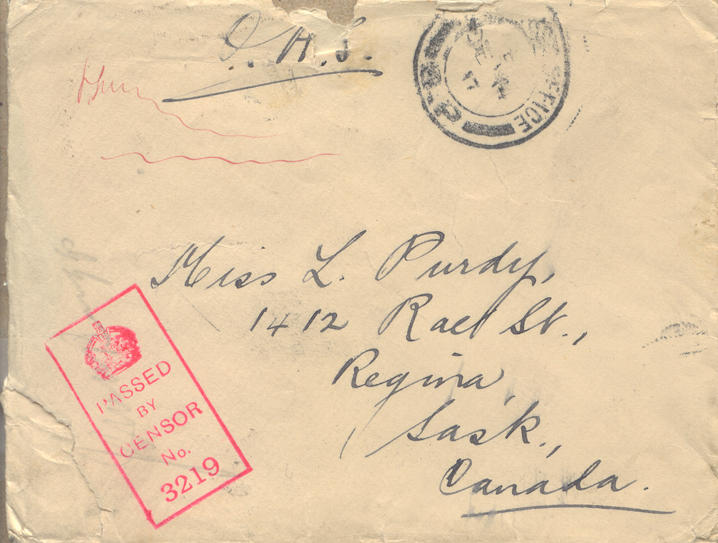 O. H. S.
OFFICE
Miss L. Purdy,
1412 Rae St.,
Regina,
Sask.,
Canada.
PASSED
BY
CENSOR
No.
3219